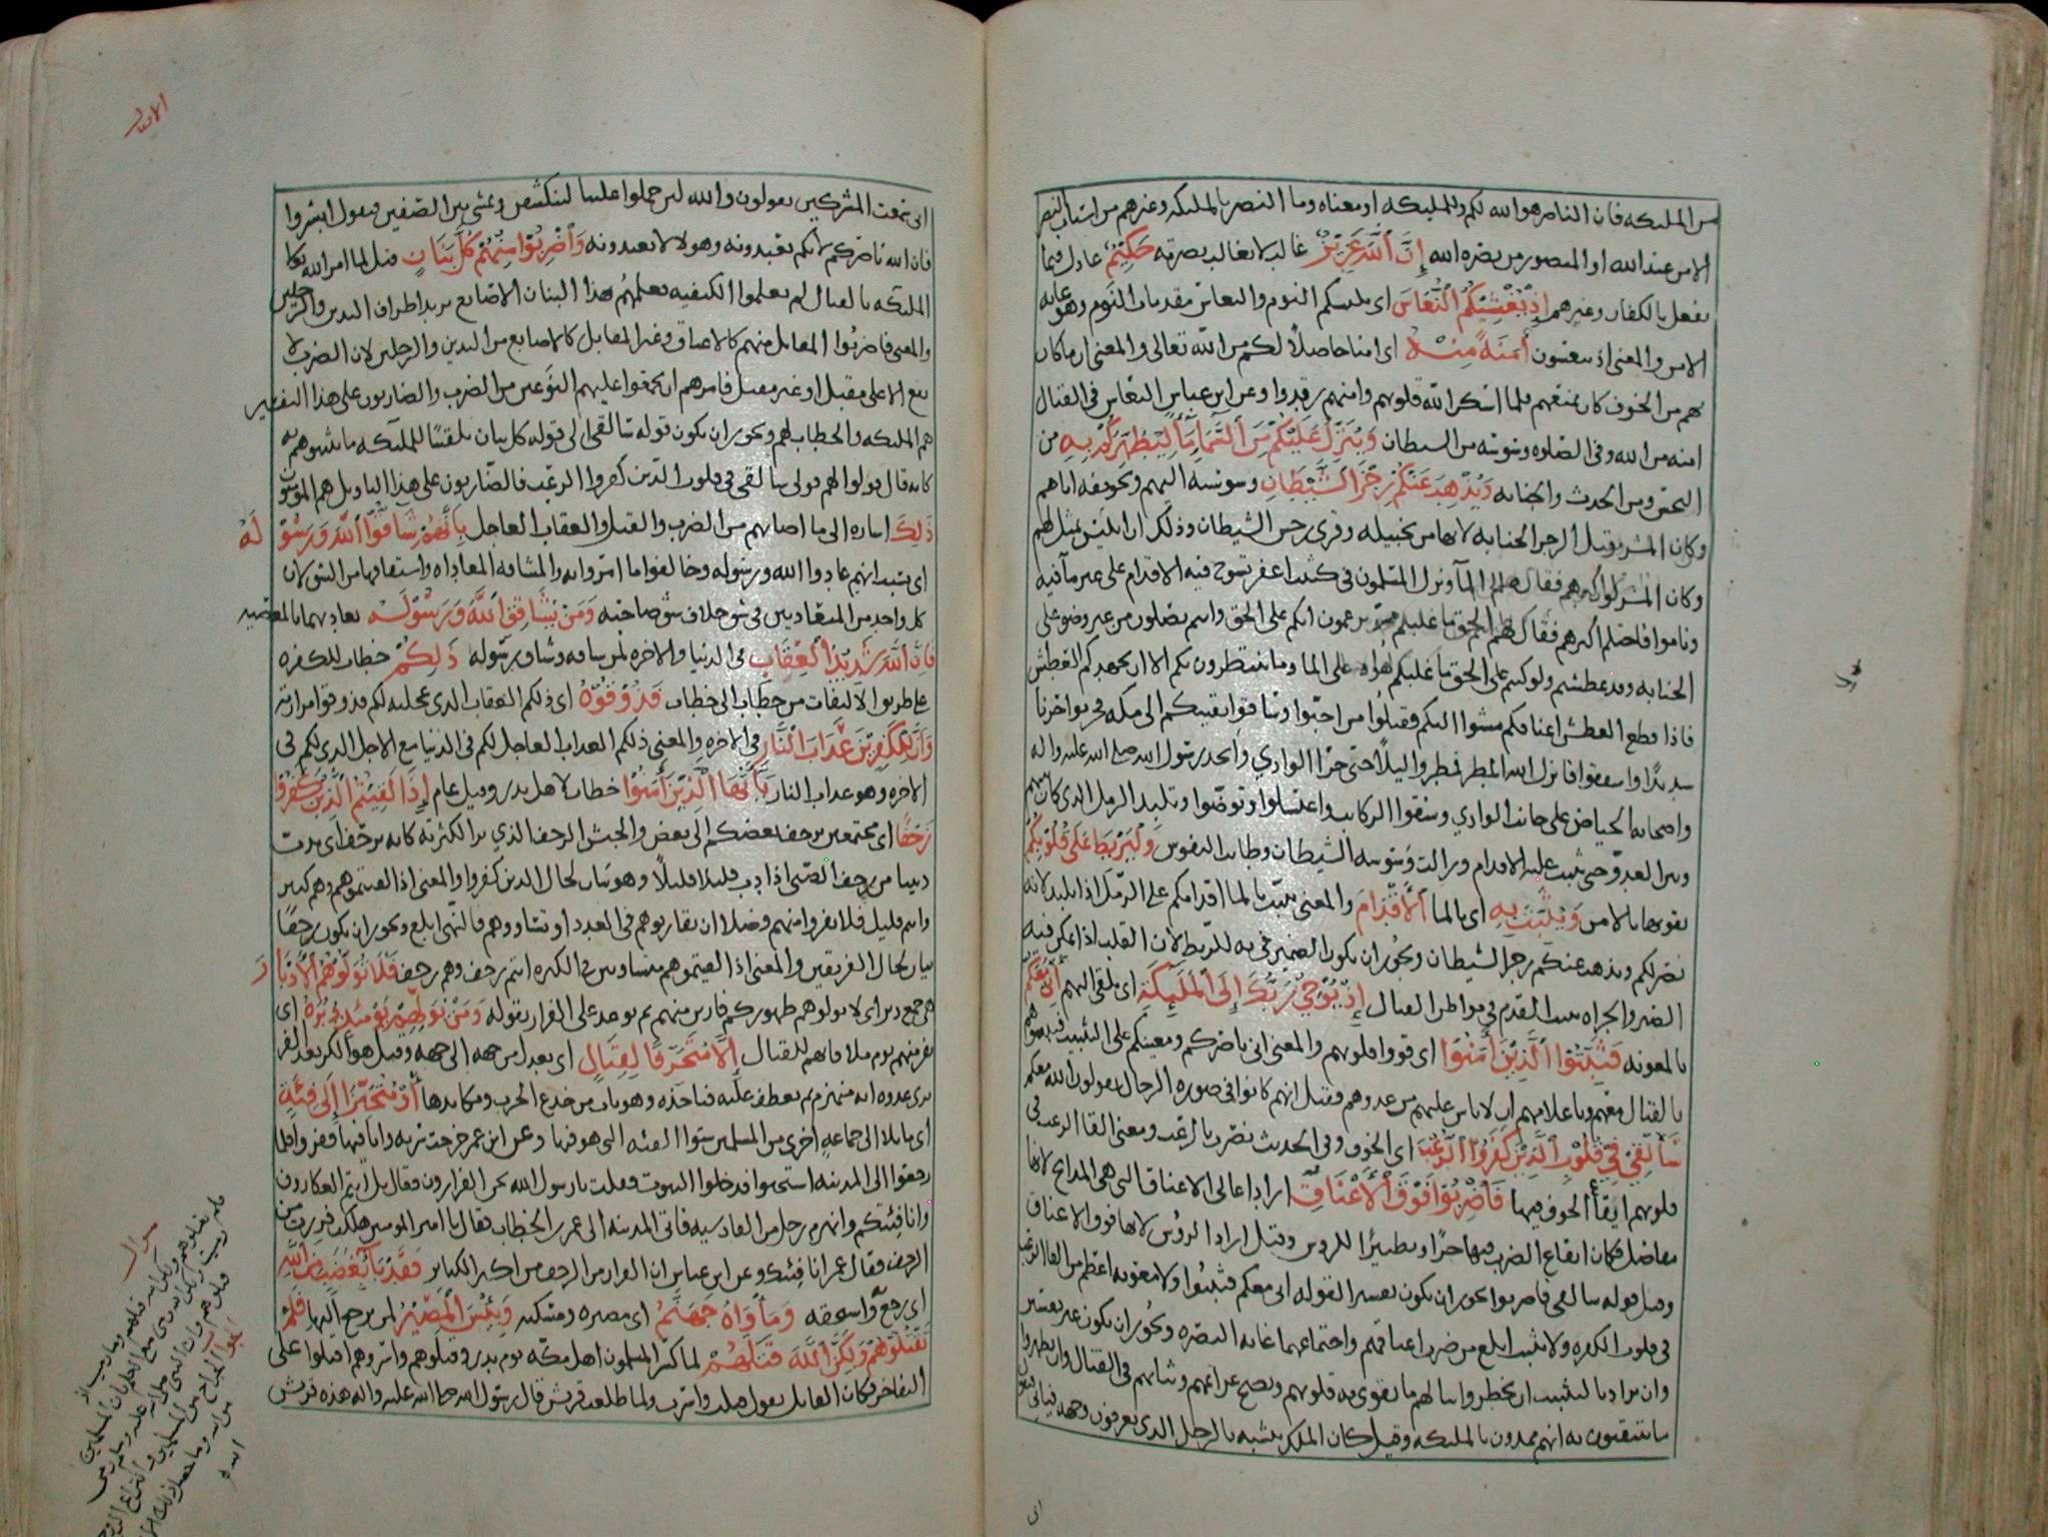 من المليكه فان الناصر هو الله لكم وللمليكه او معناه وما النصر بالمليكه وغيرهم من اسباب النصر
الا من عند الله او المنصور من نصره الله إِنَّ ٱللَّهَ عَزِيزٌ غالب لا يغالب بصرته حَكِيْمٌ عادل فيما
يفعل بالكفار وغيرهم إِذْ يُغَشِّيْكُمُ ٱلنُّعَاسَ اى يلبسكم النوم والنعاس مقدمات النوم وهو غايه
الامن والمعنى اذ تنعسون أَمَنَةً مِنْهُ اى امنا حاصلاً لكم من الله تعالى والمعنى ان ما كان
بهم من الخوف كان يمنعهم فلما اسكن الله قلوبهم وامنهم رقدوا وعن ابن عباس النعاس فى القتال
امنه من الله وفى الصلوه وسوسه من السيطان وَيُنَزِّلُ عَلَيْكُمْ مِنَ ٱلسَّمَآءِ مَآءً لِيُطَهِّرَكُمْ بِهِ من
النجس ومن الحدث والجنابه وَيُذْهِبَ عَنْكُمْ رِجْزَ ٱلشَّيْطَانِ وسوسه اليهم وتخويفه اياهم
وكان المشر وقيل الرجز الجنابه لانها من تخييله وقرى رجس الشيطان وذلك ان ابليس تمثل لهم
وكان المشركون اكثرهم فقال لهم الما ونزل المسلمون فى كثيب اعفر تسوخ فيه الاقدام على غير ما فيه
وناموا فاحتلم اكثرهم فقال لهم الحق ما غلبكم تزعمون انكم على الحق وانتم تصلون من غير وضو على
الجنابه وقد عطشتم ولو كنتم على الحق ما غلبكم هولاء على الما وما تنتظرون بكم الا ان يجهدكم العطش
فاذا قطع العطش اعناقكم مشوا اليكم فقتلوا من احبوا وساقوا بقيتكم الى مكه فحزنوا حزنا
شديدًا واسفقوا فانزل الله المطر فمطروا ليلاً حتى جرى الوادي واتخذ رسول الله صلى الله عليه واله
واصحابه الحياض على جانب الوادي وسقوا الركاب واغتسلوا وتوضّوا وتلبد الرمل الذى كان بينهم
وبين العدو حتى ثبتت عليه الاقدام وزالت وسوسه الشيطان وطابت النفوس وَلِيَرْبِطَ عَلَى قُلُوْبِكُمْ
يقويها بالامن وَيُثَبِّتَ بِهِ اى بالما ٱلْأَقْدَامَ والمعنى يثبت بالما اقدامكم على الرمل اذا تلبد لانه
نصر لكم ويذهب عنكم رجز الشيطان ويجوز ان يكون الضمير فى به للربط لان القلب اذا تمكن فيه
الصبر والجراه ثبتت القدم فى مواطن القتال إِذْ يُوْحِيْ رَبُّكَ إِلَى ٱلْمَلَٰٓئِكَةِ اى يلقى اليهم أَنِّي مَعَكُمْ
بالمعونه فَثَبِّتُوا ٱلَّذِيْنَ آمَنُوْا اى قووا قلوبهم والمعنى انى ناصركم ومعينكم على التثبيت فثبتوهم
بالقتال معهم وباعلامهم ان لا باس عليهم من عدوهم وقيل انهم كانوا فى صوره الرجال يقولون الله معكم
سَأُلْقِيْ فِيْ قُلُوْبِ ٱلَّذِيْنَ كَفَرُوا ٱلرُّعْبَ اى الخوف وفى الحديث نصرت بالرعب ومعنى القا الرعب فى
قلوبهم ايقاع الخوف فيها فَٱضْرِبُوْا فَوْقَ ٱلْأَعْنَاقِ اراد اعالى الاعناق التى هى المذابح لانها
مفاصل فكان ايقاع الضرب فيها حزًا وتطييرًا للروس وقيل اراد الروس لانها فوق الاعناق
وقيل قوله سالقى فاضربوا يجوز ان يكون تفسيرا لقوله انى معكم فثبتوا ولا معونه اعظم من القا الرعب
فى قلوب الكفره ولا تثبيت ابلغ من ضرب اعناقهم واجتماعهما غايه النصره ويجوز ان يكون غير تفسير
وان يراد بالتثبيت ان يخطروا ببالهم ما تقوى به قلوبهم وتصح عزائمهم ونياتهم فى القتال وان يظهروا
ما يتيقنون به انهم ممدون بالمليكه وقيل كان الملك يتشبه بالرجل الذى يعرفون وجهه فياتى فيقول
انى
الانفال
انى سمعت المشركين يقولون والله لئن حملوا علينا لننكشفن ويمشى بين الصفين فيقول ابشروا
فان الله ناصركم لانكم تعبدونه وهولا لا يعبدونه وَٱضْرِبُوْا مِنْهُمْ كُلَّ بَنَانٍ قيل لما امر الله تعالى
المليكه بالقتال لم يعلموا الكيفيه فعلمهم هذا البنان الاصابع يريد اطراف اليدين والرجلين
والمعنى فاضربوا المقاتل منهم كالاعناق وغير المقاتل كالاصابع من اليدين والرجلين لان الضرب لا
يقع الا على مقتل او غير مقتل فامرهم ان يجمعوا عليهم النوعين من الضرب والضاربون على هذا التفسير
هم المليكه والخطاب لهم ويجوز ان يكون قوله سالقى الى قوله كل بنان تلقينًا للمليكه ما يثبتوهم به
كانه قال قولوا لهم قولى سالقى فى قلوب الذين كفروا الرعب فالضاربون على هذا التاويل هم المومنون
ذَٰلِكَ اشاره الى ما اصابهم من الضرب والقتل والعقاب العاجل بِأَنَّهُمْ شَآقُّوا ٱللَّهَ وَرَسُوْلَهُ
اى بسبب انهم عادوا الله ورسوله وخالفوا ما امروا به والمشاقه المعاداه واشتقاقها من الشق لان
كل واحد من المتعاديين فى شق خلاف شق صاحبه وَمَنْ يُشَاقِقِ ٱللَّهَ وَرَسُوْلَهُ يعاديهما بالمعصيه
فَإِنَّ ٱللَّهَ شَدِيْدُ ٱلْعِقَابِ فى الدنيا والاخره لمن شاقه وشاق رسوله ذَٰلِكُمْ خطاب للكفره
على طريق الالتفات من خطاب الى خطاب فَذُوْقُوْهُ اى ذلكم العقاب الذى عجلته لكم فذوقوا مرارته
وَأَنَّ لِلْكَٰفِرِيْنَ عَذَابَ ٱلنَّارِ فى الاخره والمعنى ذلكم العذاب العاجل لكم فى الدنيا مع الاجل الذى لكم فى
الاخره وهو عذاب النار يَآ أَيُّهَا ٱلَّذِيْنَ آمَنُوْا خطاب لاهل بدر وقيل عام إِذَا لَقِيْتُمُ ٱلَّذِيْنَ كَفَرُوْا
زَحْفًا اى مجتمعين يزحف بعضكم الى بعض والجيش الزحف الذي يرا لكثرته كانه يزحف اى يدب
دبيبا من زحف الصبى اذا دب قليلا قليلاً وهو بيان لحال الذين كفروا والمعنى اذا لقيتموهم وهم كثير
وانتم قليل فلا تفروا منهم فضلا ان تقاربوهم فى العدد او تساووهم فالنهى ابلغ ويجوز ان يكون زحفًا
بيان لحال الفريقين والمعنى اذا لقيتموهم متساوين فى الكثره انتم زحف وهم زحف فَلَا تُوَلُّوْهُمُ ٱلْأَدْبَارَ
هى جمع دبر اى لا تولوهم ظهوركم فارين منهم ثم توعد على الفرار بقوله وَمَنْ يُوَلِّهِمْ يَوْمَئِذٍ دُبُرَهُ اى
يفر منهم يوم ملاقاتهم للقتال إِلَّا مُتَحَرِّفًا لِقِتَالٍ اى يعدل من جهه الى جهه وقيل هو الكر بعد الفر
يرى عدوه انه منهزم ثم يعطف عليه فياخذه وهو باب من خدع الحرب ومكايدها أَوْ مُتَحَيِّزًا إِلَى فِئَةٍ
اى مايلا الى جماعه اخرى من المسلمين سوا الفئه التى هو فيها وعن ابن عمر خرجت سريه وانا فيها ففروا فلما
رجعوا الى المدينه استحيوا فدخلوا البيوت فقلت يا رسول الله نحن الفرارون فقال بل انتم العكارون
وانا فئتكم وانهزم رجل من القادسيه فاتى المدينه الى عمر بن الخطاب فقال يا امير المومنين هلكت فررت من
الزحف فقال عمر انا فئتك وعن ابن عباس ان الفرار من الزحف من اكبر الكبائر فَقَدْ بَآءَ بِغَضَبٍ مِنَ ٱللَّهِ
اى رجع واستحقه وَمَأْوَاهُ جَهَنَّمُ اى مصيره ومسكنه وَبِئْسَ ٱلْمَصِيْرُ لمن يرجع اليها فَلَمْ
تَقْتُلُوْهُمْ وَلَٰكِنَّ ٱللَّهَ قَتَلَهُمْ لما كسر المسلمون اهل مكه يوم بدر وقتلوهم واسروهم اقبلوا على
التفاخر فكان القايل يقول قتلت واسرت ولما طلعت قريش قال رسول الله صلى الله عليه واله هذه قريش
سوال